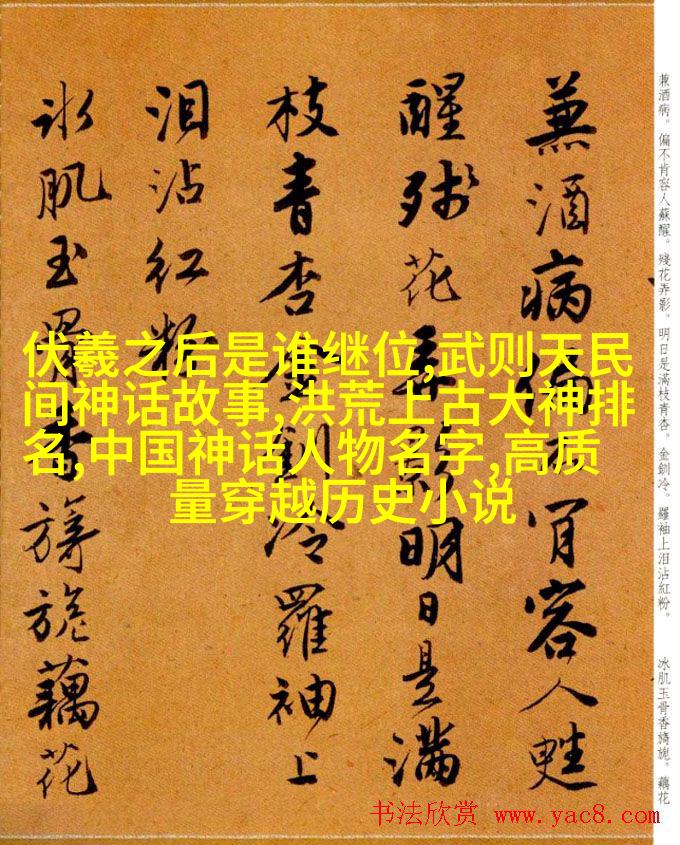 兼酒病。偏不肯容人蘇醒。殘花弄影。明日是滿枝青杏。金釧冷。羅袖上泪沾紅粉。
冰肌玉骨香旖旎。藕花
兼酒病偏不肯容人甦
醒殘花弄影明日是滿
枝青杏金釧冷羅袖上
泪沾紅粉
冰肌玉骨香旖旎藕花
伏羲之后是谁继位,武则天民
间神话故事,洪荒上古大神排
名,中国神话人物名字,高质
量穿越历史小说
书法欣赏 www.yac8.com